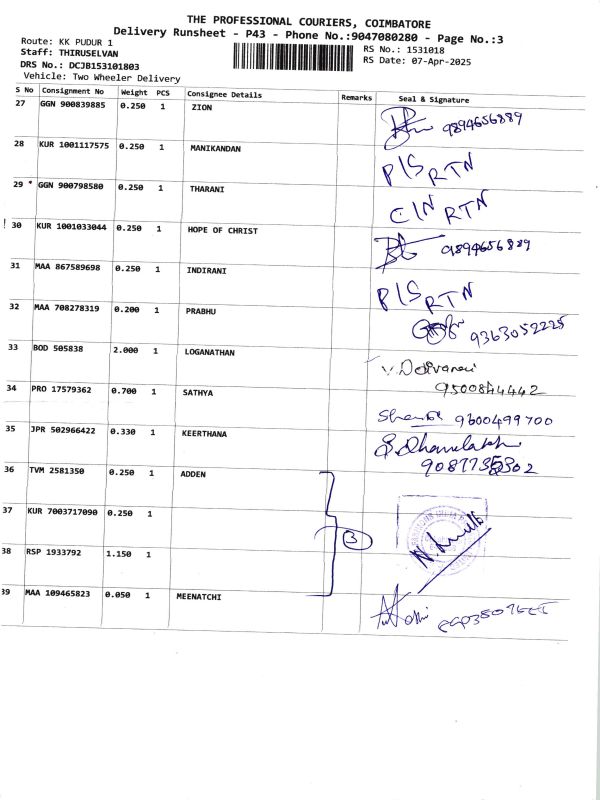 THE PROFESSIONAL COURIERS, COIMBATORE
Delivery Runsheet - P43 - Phone No.:9047080280 - Page No.:3
Route: KK PUDUR 1
Staff: THIRUSELVAN
RS No.: 1531018
DRS No.: DCJB153101803
RS Date: 07-Apr-2025
Vehicle: Two Wheeler Delivery
S No Consignment No Weight PCS Consignee Details Remarks Seal & Signature
27 GGN 900839885 0.250 1 ZION 9894656889
28 KUR 1001117575 0.250 1 MANIKANDAN P/S RTN
29 * GGN 900798580 0.250 1 THARANI C/N RTN
! 30 KUR 1001033044 0.250 1 HOPE OF CHRIST 9894656889
31 MAA 867589698 0.250 1 INDIRANI P/S RTN
32 MAA 708278319 0.200 1 PRABHU 9363052225
33 BOD 505838 2.000 1 LOGANATHAN
9500844442
34 PRO 17579362 0.700 1 SATHYA 9600499700
35 JPR 502966422 0.330 1 KEERTHANA
36 TVM 2581350 0.250 1 ADDEN
37 KUR 7003717090 0.250 1
3
38 RSP 1933792 1.150 1
39 MAA 109465823 0.050 1 MEENATCHI